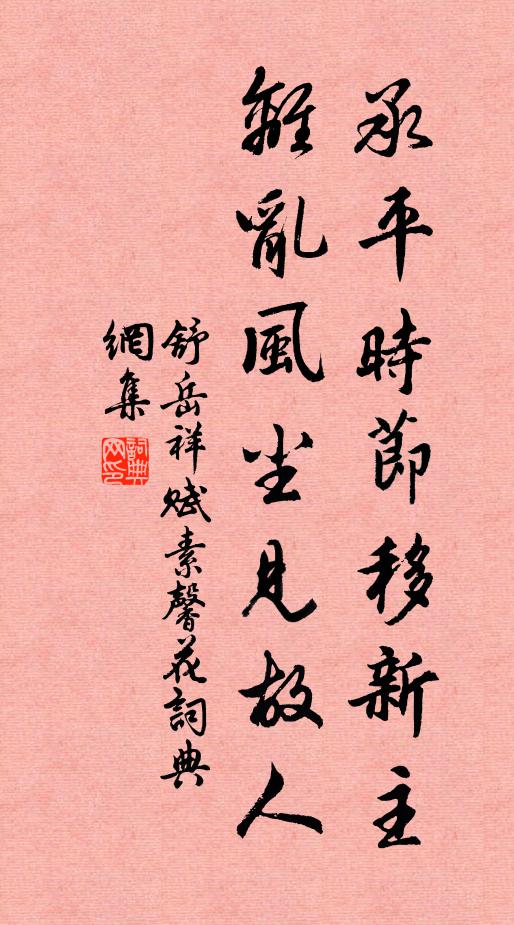 承平時節移新主
離亂風塵見故人
舒岳祥賦素馨花詞典
網集
詞典網印